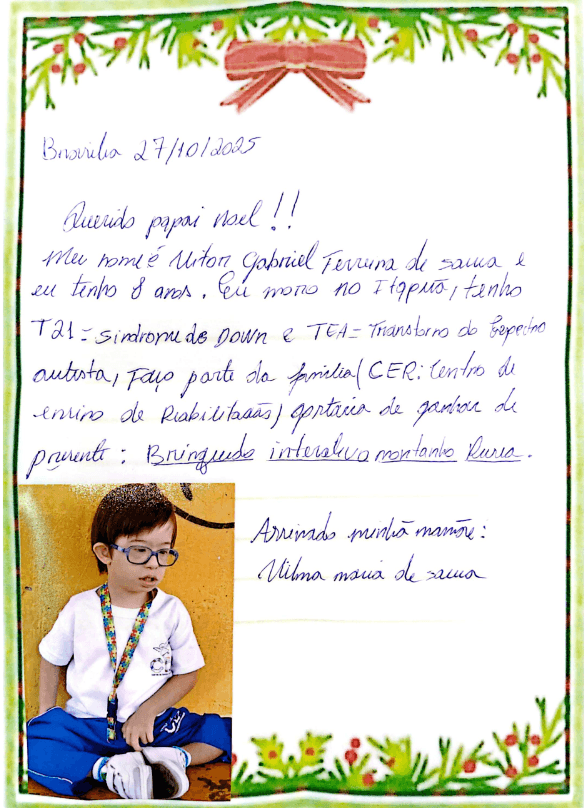 Brasilia 27/10/2025
Querido papai Noel!!
Meu nome é Vitor Gabriel Ferreira de sousa e
eu tenho 8 anos. Eu moro no Itapuã, tenho
T21 = sindrome de DOWN e TEA = Transtorno do Espectro
autista, Faço parte da familia (CER: Centro de
ensino de Reabilitação) gostaria de ganhar de
presente: Brinquedo interativo montanha Russa.
Assinado minhã mamãe:
Vilma maria de sousa